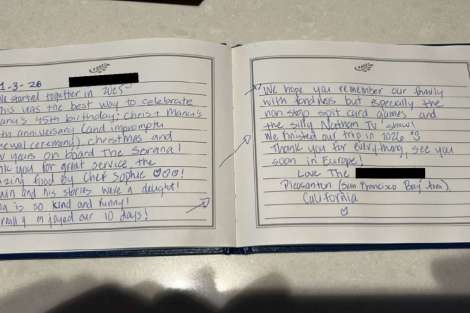 1-3-26
We started together in 2025
this was the best way to celebrate
45th birthday, Christ Maria's
th anniversary (and impromptu
newal ceremony), christmas and
w years on board The Serena!
nk you for great service the
azing food by Chef Sophie
and his stories were a delight!
is so kind and funny!
enjoyed our 10 days!
We hope you remember our family
with fondness but especially the
non stop spit card games and
the silly Nathan TV show!
We finished our trip in 2026
Thank you for everything, see you
soon in Europe!
Love The
Pleasanton (San Francisco Bay Area),
California